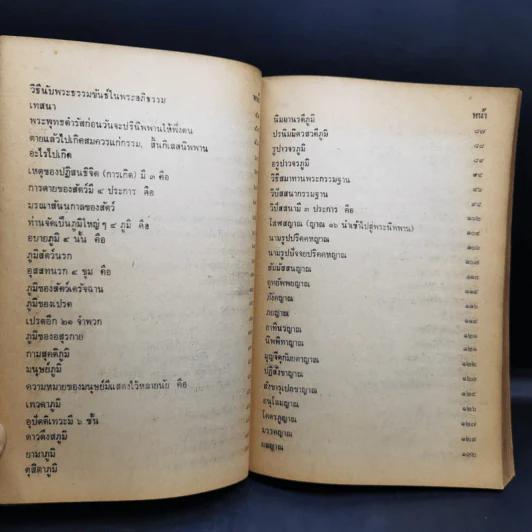 วิธีนับพระธรรมขันธ์ในพระอภิธรรม
เทสนา
พระพุทธดำรัสก่อนวันจะปรินิพพานให้พึ่งตน
ตายแล้วไปเกิดสมควรแก่กรรม, สิ้นกิเลสนิพพาน
อะไรไปเกิด
เหตุของปฏิสนธิจิต (การเกิด) มี ๓ คือ
การตายของสัตว์มี ๔ ประการ คือ
มรณาสันนกาลของสัตว์
ท่านจัดเป็นภูมิใหญ่ ๆ ๔ ภูมิ คือ
อบายภูมิ ๔ นั้น คือ
ภูมิสัตว์นรก
อุสสทนรก ๔ ขุม คือ
ภูมิของสัตว์เดรัจฉาน
ภูมิของเปรต
เปรตอีก ๒๑ จำพวก
ภูมิของอสุรกาย
กามสุคติภูมิ
มนุษย์ภูมิ
ความหมายของมนุษย์มีแสดงไว้หลายนัย คือ
เทวดาภูมิ
อุปัตติเทวะมี ๖ ชั้น
ดาวดึงสภูมิ
ยามาภูมิ
ดุสิตาภูมิ
หน้า
นิมมานรดีภูมิ ๘๗
ปรนิมมิตวสวดีภูมิ ๘๘
รูปาวจรภูมิ ๘๙
อรูปาวจรภูมิ
วิธีสมาทานพระกรรมฐาน
วิปัสสนากรรมฐาน
วิปัสสนามี ๓ ประการ คือ
โสฬสญาณ (ญาณ ๑๖ นำเข้าไปสู่พระนิพพาน)
นามรูปปริคคหญาณ
นามรูปปัจจยปริคคหญาณ
สัมมัสสนญาณ
อุทยัพพยญาณ
ภังคญาณ
ภยญาณ
อาทีนวญาณ
นิพพิทาญาณ
มุญจิตุกัมยตาญาณ
ปฏิสังขาญาณ
สังขารุเปกขาญาณ
อนุโลมญาณ ๑๒๖
โคตรภูญาณ ๑๒๗
มรรคญาณ
ผลญาณ